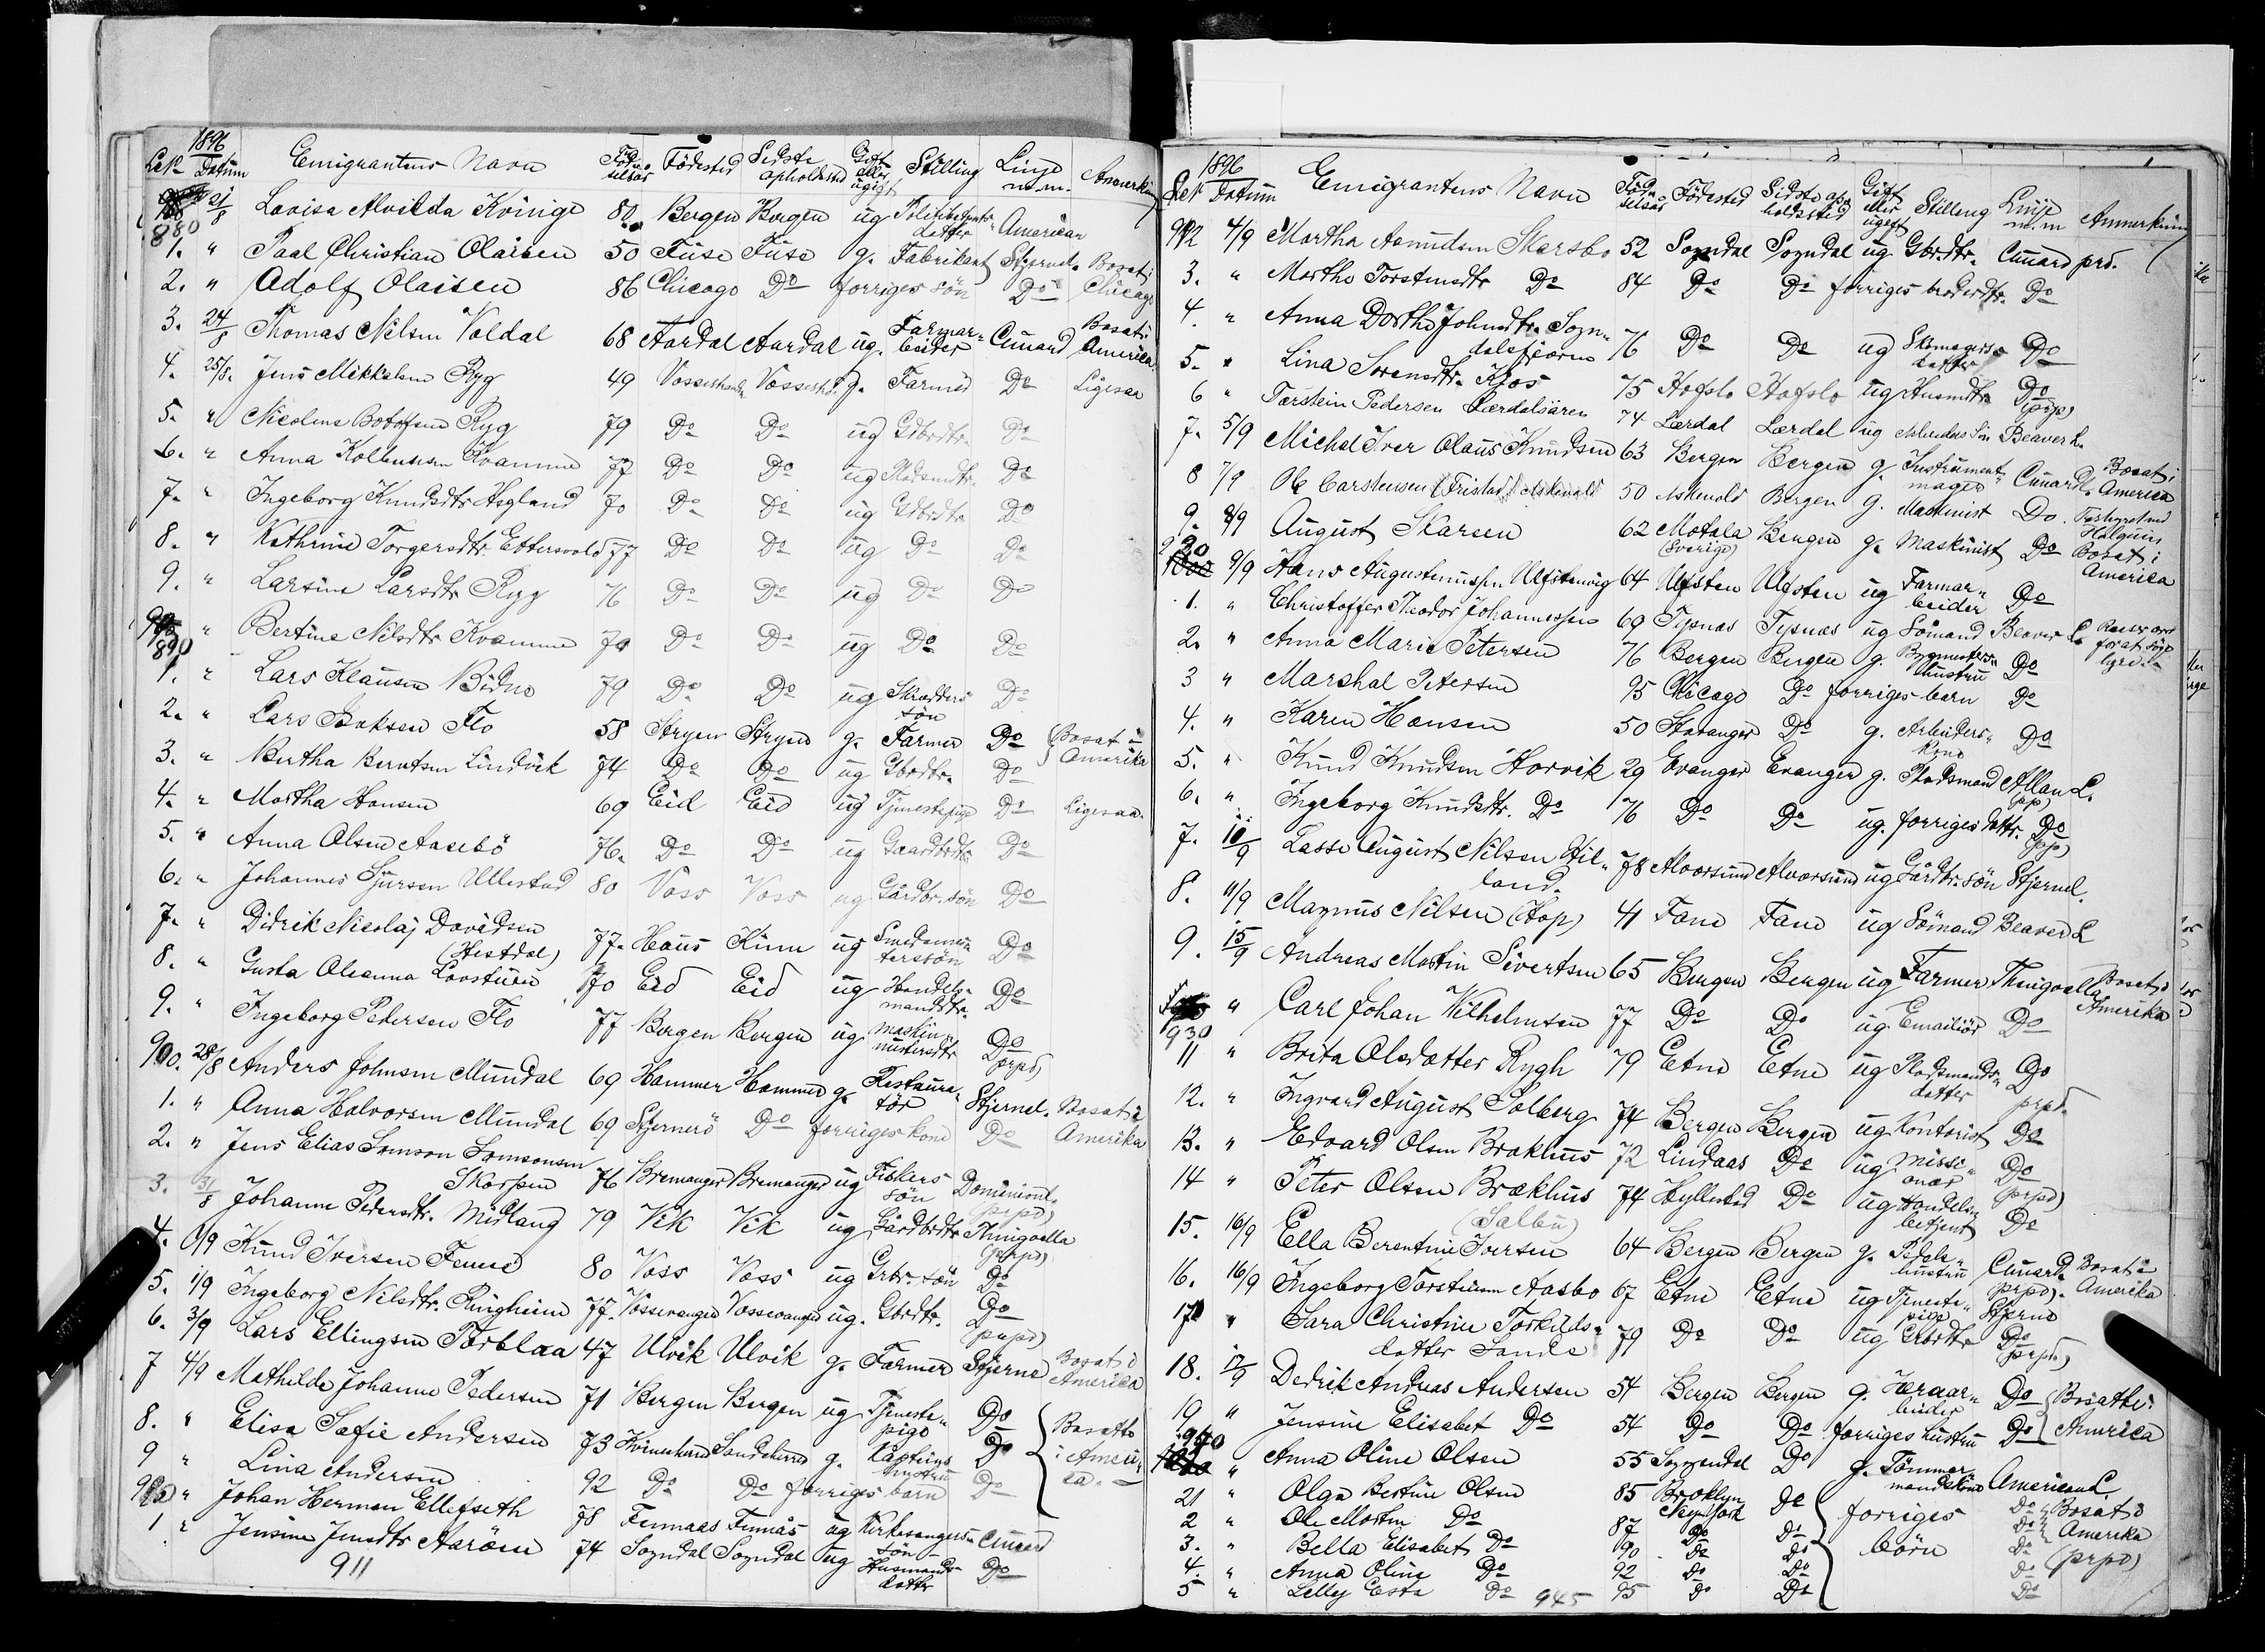 1896
LNo Datum Emigrantens Navn Fødselsår Födested Sidste opholdssted Gift eller ugift Stilling Linje m.m. Anmerkning
880 21/8 Lovisa Alvilda Könige 80 Bergen Bergen ug Politibetjents datter American
1. " Paal Christian Olaisen 50 Fuse Fuse g. Fabrikant Stjernel. Bosat i
2. " Adolf Olaisen 86 Chicago Do forriges sön Do Chicago
3. 24/8 Thomas Nilsen Voldal 68 Aardal Aardal ug. Farmarbeider Cunard Bosat i America
4. 25/8. Jens Mikkelsen Ryg 49 Vossestrand Vossestrd. g. Farmer Do Ligesaa
5. " Nicoline Botolfsen Ryg 79 Do Do ug Gdbrdtr. Do
6. " Anna Kolbensen Kvamme 77 Do Do ug Pladsmdtr. Do
7. " Ingeborg Knudsdtr. Hegland 70 Do Do ug Gdbrdtr Do
8. " Kathrine Torgersdtr. Ettersvold 77 Do Do ug Do Do
9. " Larsine Larsdtr Ryg 76 Do Do ug Do Do
890 " Bertine Nilsdtr Kvamme 79 Do Do ug Do Do
1. " Lars Klausen Bidne 79 Do Do ug Skrædders sön Do
2. " Lars Isaksen Flo 58 Stryen Stryen g. Farmer Do Bosat i
3. " Bertha Berntsen Lindvik 74 Do Do ug Gbrdtr. Do Amerika
4. " Martha Hansen 69 Eid Eid ug Tjenestepige Do Ligesaa.
5. " Anna Olsen Aasebö 76. Do Do ug Gaardbdtr Do
6. " Johannes Sjursen Ullestad 80 Voss Voss ug Gårdbr. sön Do
7. " Didrik Nicolaj Davidsen (Hestdal) 77. Haus Kinn ug Smedemesterssön Do
8. " Gusta Oleanna Lovstuen 70 Eid Eid ug Handelsmandsdtr. Do
9. " Ingeborg Pedersen Flo 77 Bergen Bergen ug Maskinmistersdtr Do (prpd)
900. 28/8 Anders Johnsen Mundal 69 Hammer Hammer g. Restauratör Stjernel. Bosat i
1. " Anna Halvorsen Mundal 69 Stjernerö Do forriges kone Do Amerika
2. " Jens Elias Samson Samsonsen Skorpen 76 Bremanger Bremanger ug Fiskers sön Dominionl. (prpd)
3. 31/8 Johanne Pedersdtr. Midlang 79 Vik Vik ug Gårdbrdtr Thingvalla (prpd)
4. 1/9 Knud Iversen Fenne 80 Voss Voss ug Grbr. sön Do
5. 1/9 Ingeborg Nilsdtr. Ringheim 77. Vossevangen Vossevangen ug. Gbrdtr. Do (prpd)
6. 3/9 Lars Ellingsen Torblaa 47 Ulvik Ulvik g. Farmer Stjerne Bosat i America
7 4/9 Mathilde Johanne Pedersen 71 Bergen Bergen ug Tjenestepige Do
8. " Elisa Sofie Andersen 73 Kvinnherred Sandeherred g. Kapteins hustru Do Bosatte i America.
9 " Lina Andersen 92 Do Do forriges barn Do
910 " Johan Herman Ellefseth 78 Finnaas Finnås ug Kirkesangers sön Cunard
1 " Jensine Jensdtr Aaröen 74 Sogndal Sogndal ug Husmandsdatter Do
911
1896
LNo Datum Emigrantens Navn Fødselsår Födested Sidste opholdssted Gift eller ugift Stilling Linje m.m Anmerkning
912 4/9 Martha Aamundsen Skarsbo 52 Sogndal Sogndal ug Gbrdtr. Cunard prd.
3. " Marthe Torstensdtr Do 84 Do Do forriges broderdtr. Do
4. " Anna Dorthe Johnsdtr. Sogndalsfjoeren 76 Do Do ug Skomagersdatter Do
5. " Lina Sorensdtr. Kjos 75 Hafslo Hafslo ug Husmdtr. Do (prp)
6 " Torstein Pedersen Lærdalsören 74 Lærdal Lærdal ug Arbeiders Sön Beaver L.
7. 5/9 Michel Iver Olaus Knudsen 63 Bergen Bergen g. Instrumentmager Cunardl. Bosat i America
8 7/9 Ole Carstensen (Fristad) Askevold 50 Askevold Bergen g. Maskinist Do.
9. 8/9 August Skarsen 62 Motala (Sverige) Bergen g. Maskinist Do Bosat i America
920 9/9 Hans Augustinussen Ulfstenvig 64 Ulfsten Ulfsten ug Farmarbeider Do
1. " Christoffer Theodor Johannessen 69 Tysnæs Tysnæs ug Sömand Beaver L.
2. " Anna Marie Petersen 76 Bergen Bergen g. Bygmesters hustru Do
3 " Marshal Petersen 95 Chicago Do forriges barn Do
4. " Karen Hansen 50 Stavanger Do g. Arbeiders kone Do
5. " Knud Knudsen Horvik 29 Evanger Evanger g. Pladsmand Allan L. (pp)
6. " Ingeborg Knudsdtr. Do 76 Do Do ug. forriges dattr. Do (prp)
7. 10/9 Lasse August Nilsen Hilland. 78 Alversund Alversund ug Gårdbr. sön Stjernel.
8. 11/9 Magnus Nilsen (Hop) 41 Fane Fane ug Sömand Beaver L
9. 15/9 Andreas Martin Sivertsen 65 Bergen Bergen ug Farmer Thingvalla Bosat i Amerika
930 " Carl Johan Wilhelmsen 77 Do Do ug. Emailiör Do
11 " Brita Olsdatter Rygh 79 Etne Etne ug Pladsmandsdatter Do prpd.
12. " Ingvard August Solberg 74 Bergen Bergen ug Kontorist Do
13. " Edvard Olsen Brækhus 72 Lindaas Do ug Missionær Do (prpd)
14 " Peter Olsen Brækhus (Salbu) 74 Hyllestad Do ug Handelsbetjent Do
15. 16/9 Ella Berentine Iversen 64 Bergen Bergen g. Pedelshustru Cunard. Bosat i
16. 16/9 Ingeborg Torsteinsen Aasbo 67 Etne Etne ug Tjenestepige Stjerne prpd. Amerika
17 " Sara Christine Torkildsdatter Sande 79 Do Do ug Grbrdtr Do (prpd)
18. 17/9 Dedrik Andreas Andersen 54 Bergen Bergen g. Do Bosatte i
19 " Jensine Elisabet Do 54 Do Do forriges hustru Do America
940 " Anna Oline Olsen 55 Sogendal Do g. Tömmermandskone American L.
21 " Olga Bertine Olsen 85 Broklyn New York Do forriges Do Bosat i
2 " Ole Martin Do 87 Do Do börn Do Amerika
3. " Bella Elisabet Do 90 Do Do Do (prpd)
4. " Anna Oline Do 92 Do Do Do
5 " Lelley Esta Do 945 95 Do Do Do